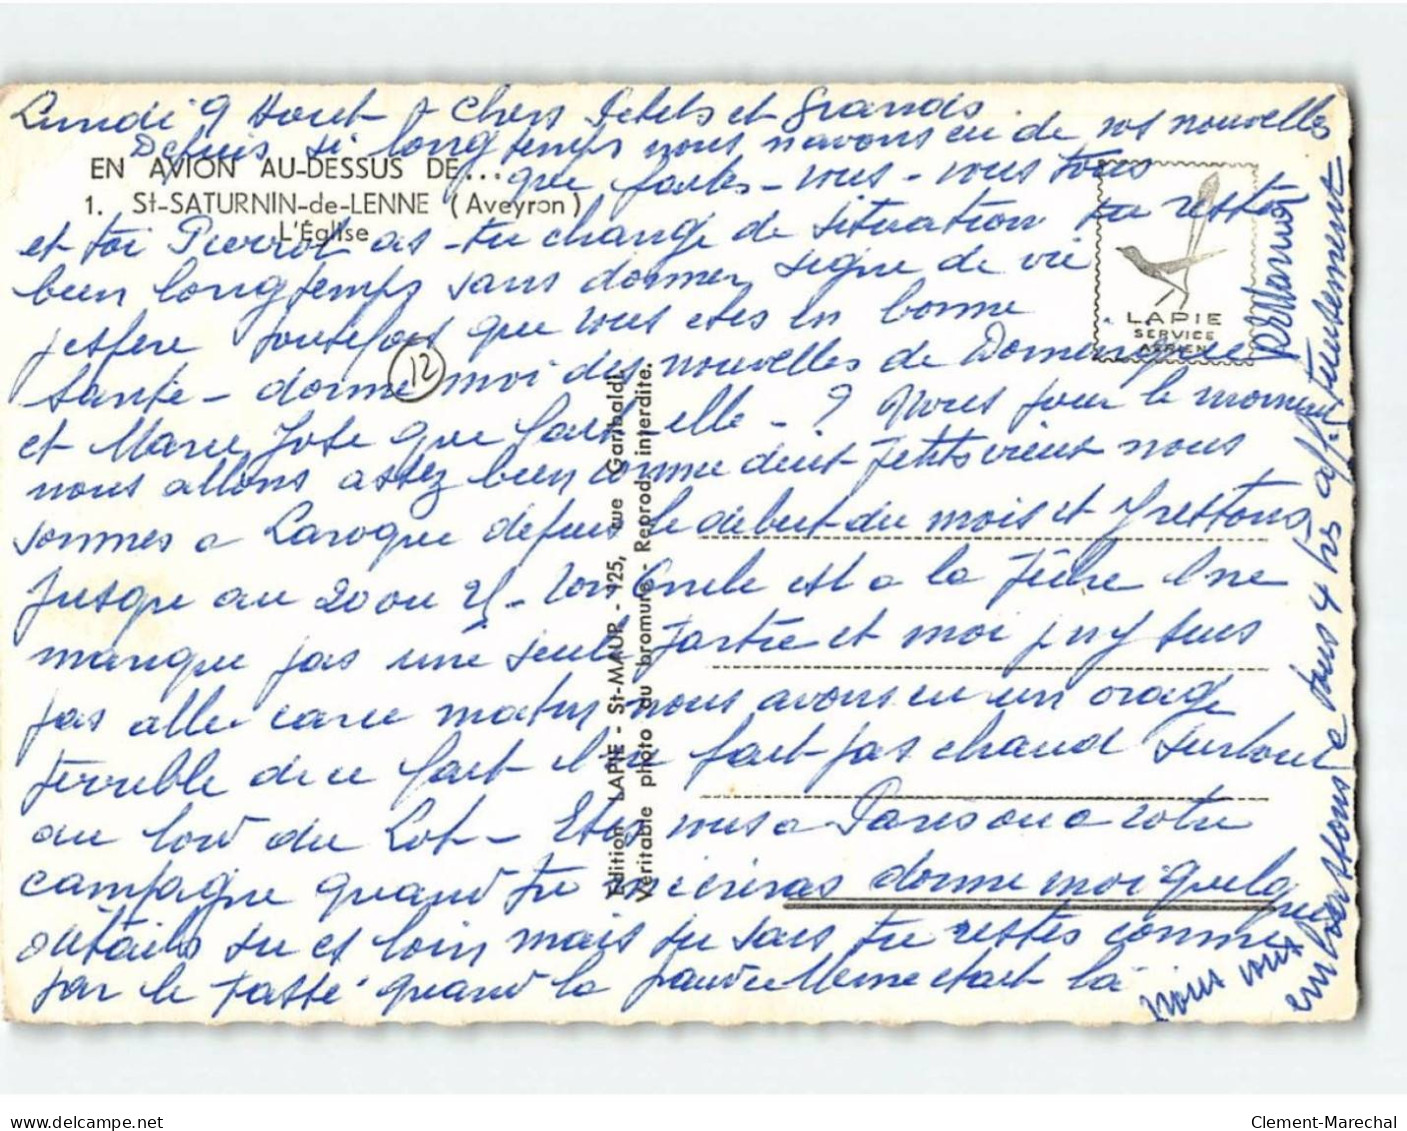 Lundi 9 Aout Chers Petits et Grands
Depuis si longtemps nous navons eu de vos nouvelles
EN AVION AU-DESSUS DE...
que faites-vous-vous tous
1. St-SATURNIN-de-LENNE (Aveyron)
L'Église
et toi Pierrot as-tu change de situation tu restes
bien longtemps sans donner signe de vie
jespere toutefois que vous etes en bonne
sante - donne moi des nouvelles de Dominique
12
et Marie Jose que fait-elle - ? Nous pour le moment
nous allons assez bien comme deux petits vieux nous
sommes a Laroque depuis le debut du mois et y restons
jusque au 20 ou 25 - ton Oncle est a la Pêche Il ne
manque pas une seule partie et moi j ny suis
pas allee ce matin nous avons eu un orage
terrible de ce fait il ne fait pas chaud surtout
au bord du Lot - Etes vous a Paris ou a votre
campagne quand tu m ecriras donne moi quelque
détails tu es loin mais tu sais tu restes comme
par le passé quand la pauvre Meme etait là
nous vous
embrassons a tous 4 tres affectueusement
LAPIE
SERVICE
AERIEN
Edition LAPIE - St-MAUR - 125, rue Garibaldi.
Véritable photo au bromure - Reprods interdite.
Clement-Marechal
delcampe.net